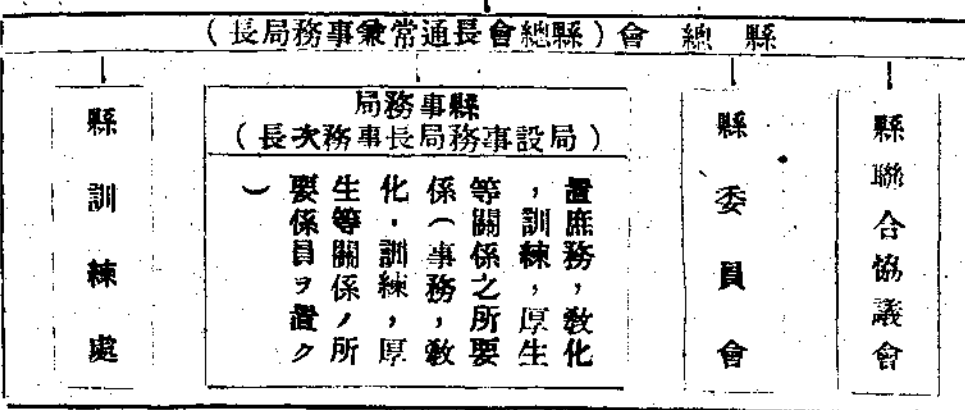 縣總會（縣總會長通常兼事務局長）
縣聯合協議會
縣委員會
縣事務局
（局設事務局長事務次長）
置庶務，敎化
，訓練，厚生
等關係之所要
係（事務，敎
化・訓練，厚
生等關係ノ所
要係員ヲ置ク
）
縣訓練處